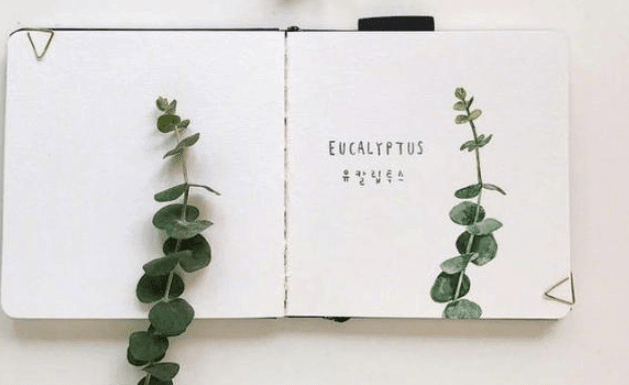 EUCALYPTUS
유칼립투스